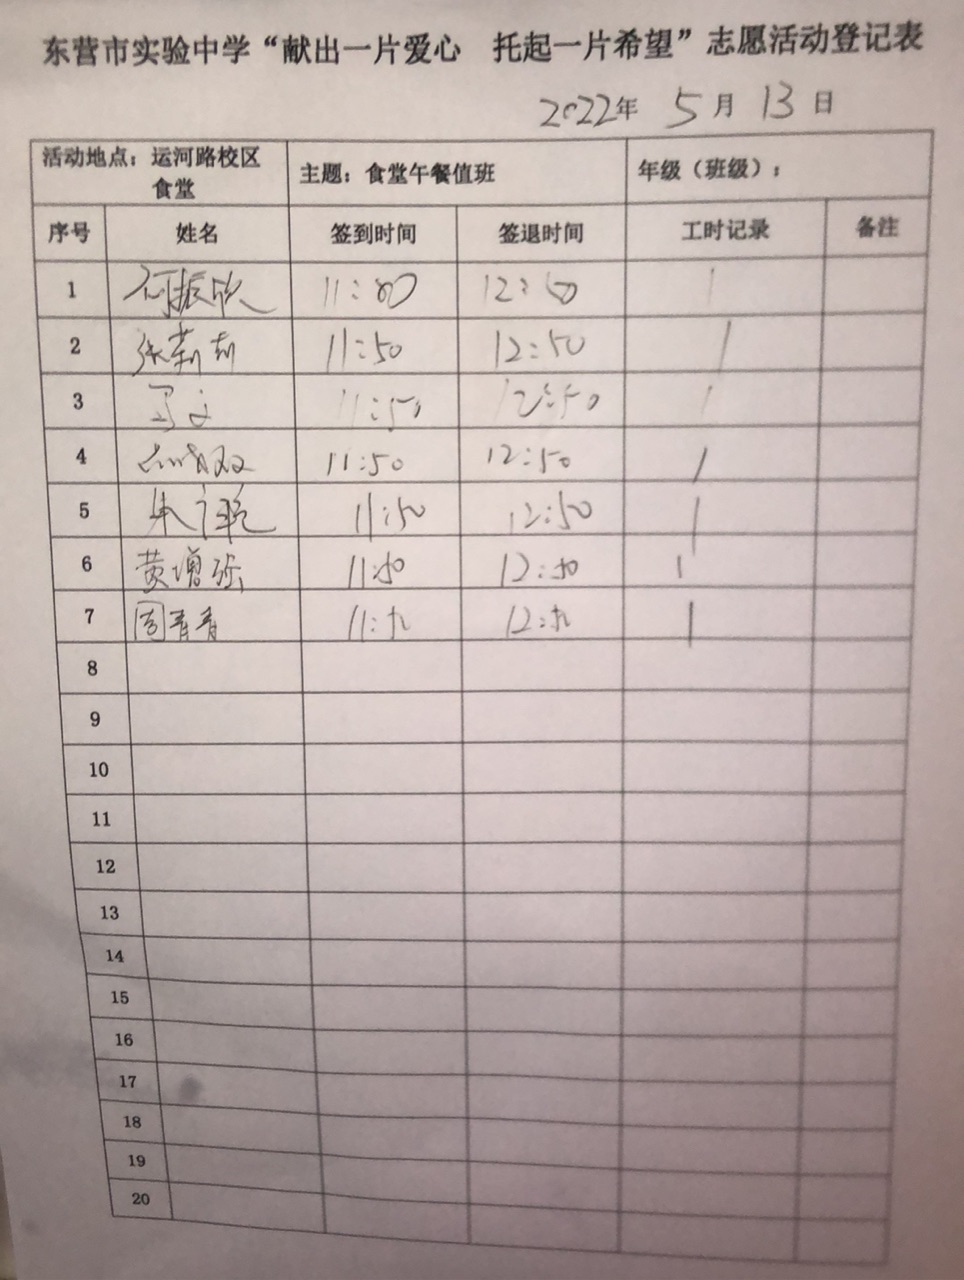 东营市实验中学“献出一片爱心 托起一片希望”志愿活动登记表
2022年 5月 13日
活动地点：运河路校区食堂 主题：食堂午餐值班 年级（班级）：
序号 姓名 签到时间 签退时间 工时记录 备注
1 何振欣 11:50 12:50 1
2 张莉莉 11:50 12:50 1
3 马文 11:50 12:50 1
4 11:50 12:50 1
5 朱 11:50 12:50 1
6 黄增强 11:50 12:50 1
7 周青青 11:50 12:50 1
8
9
10
11
12
13
14
15
16
17
18
19
20